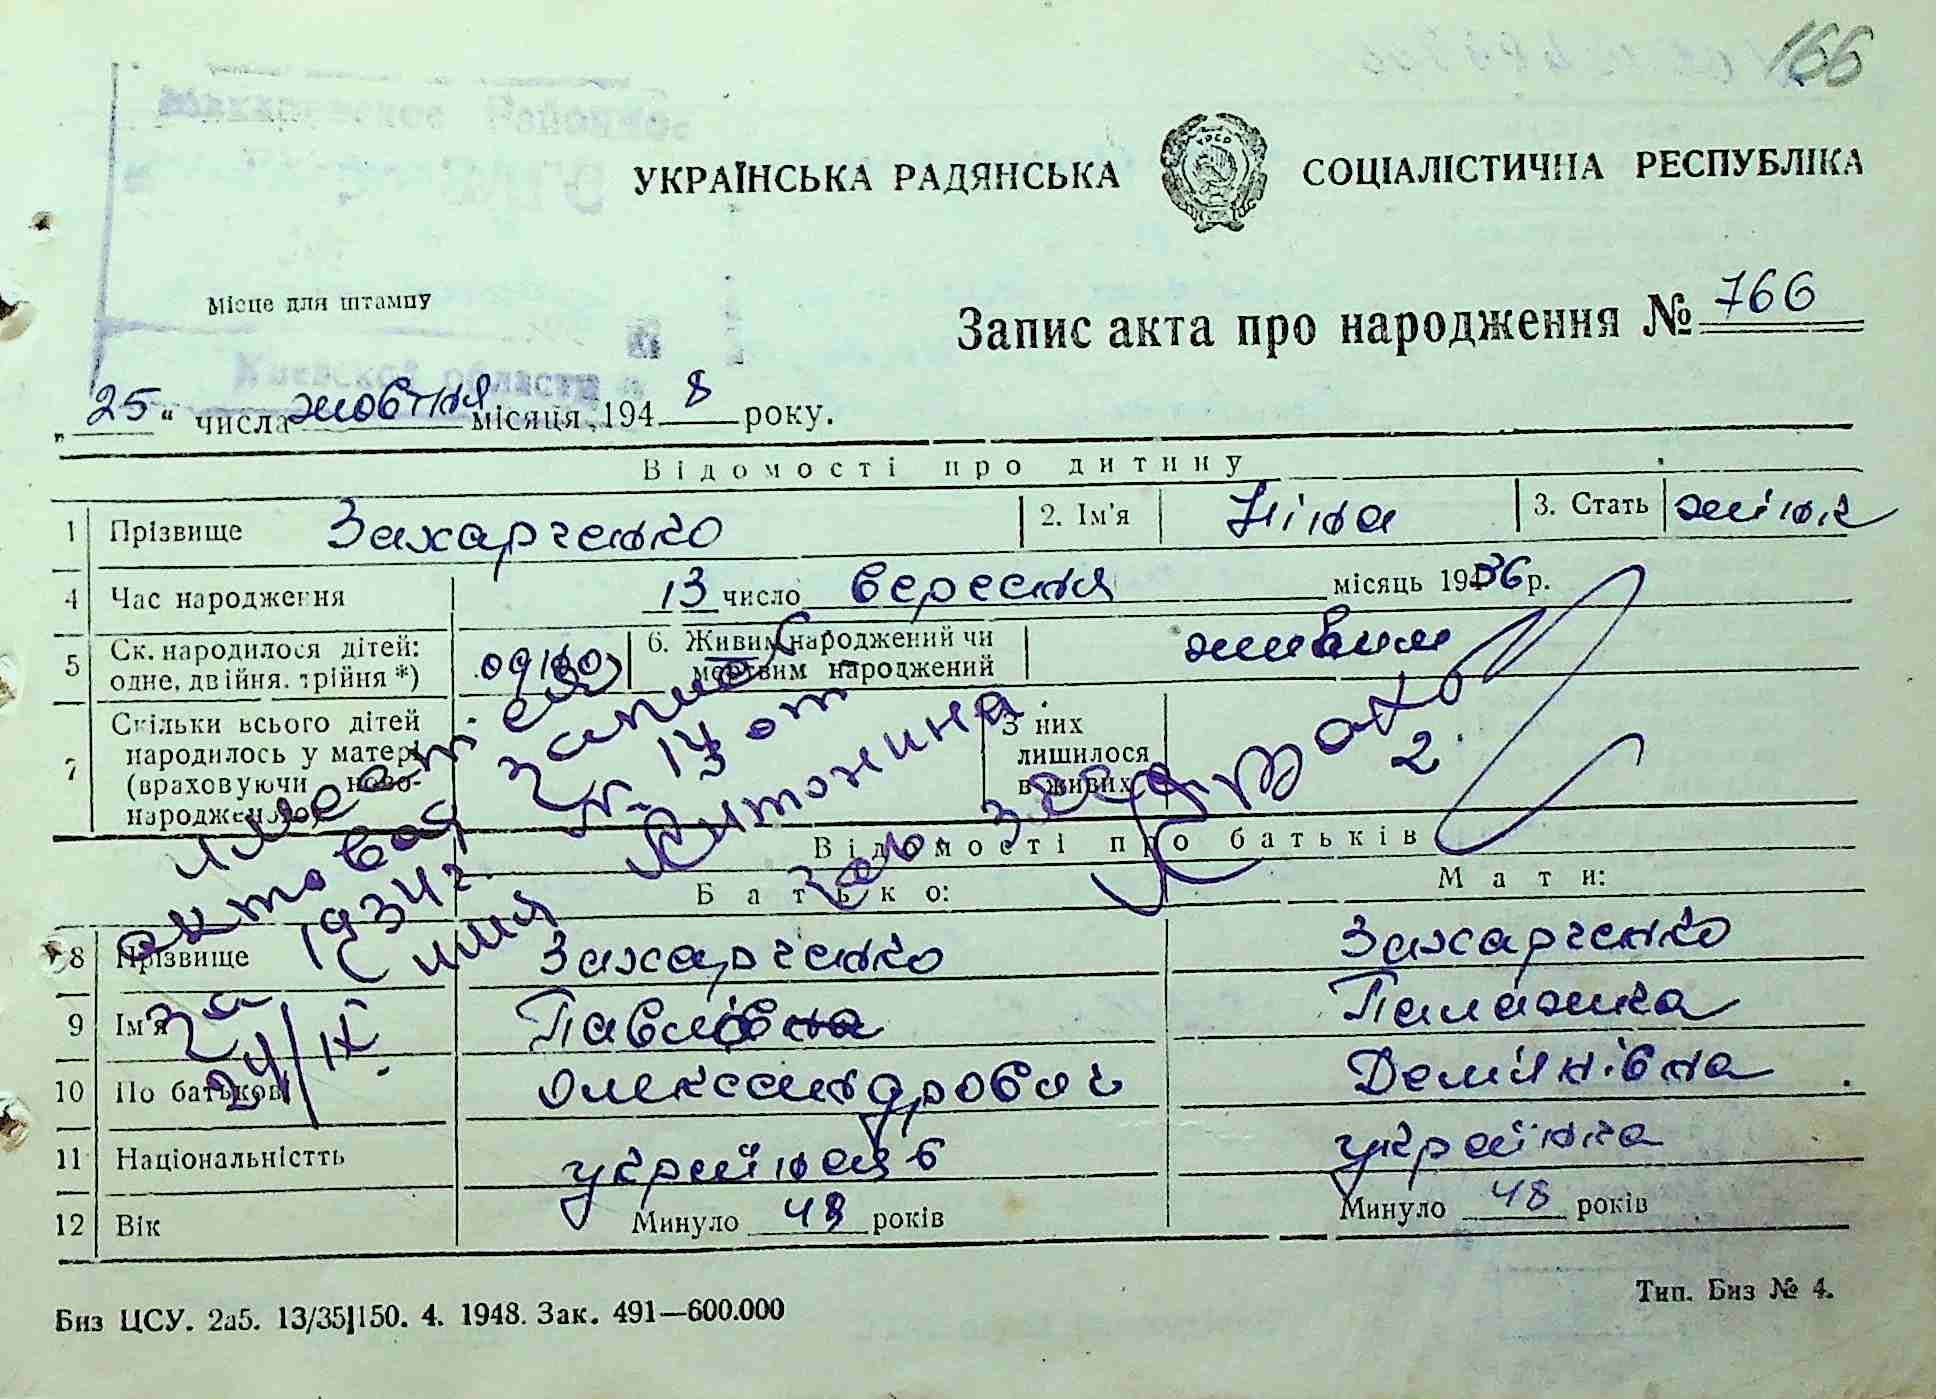 166
Районное
ЗАГС
УКРАЇНСЬКА РАДЯНСЬКА СОЦІАЛІСТИЧНА РЕСПУБЛІКА
Місце для штампу
Киевской области
Запис акта про народження № 766
„25“ числа жовтня місяця, 1948 року.
Відомості про дитину
1 Прізвище Захарченко 2. Ім'я Ніна 3. Стать жіноч
4 Час народження 13 число вересня місяць 1936 р.
5 Ск. народилося дітей: одне, двійня, трійня *) одно 6. Живим народжений чи мертвим народжений живим
7 Скільки всього дітей народилось у матері (враховуючи ново-народженого) З них лишилося в живих
Имеется
актовая запись
за 1934 г. № 13 от
24/IX. имя Антонина
Зав. загс
Відомості про батьків
Батько: Мати:
8 Прізвище Захарченко Захарченко
9 Ім'я Павло Палажка
10 По батькові Олександрович Дем'янівна
11 Національністть українець українка
12 Вік Минуло 48 років Минуло 48 років
Биз ЦСУ. 2а5. 13/35|150. 4. 1948. Зак. 491—600.000
Тип. Биз № 4.